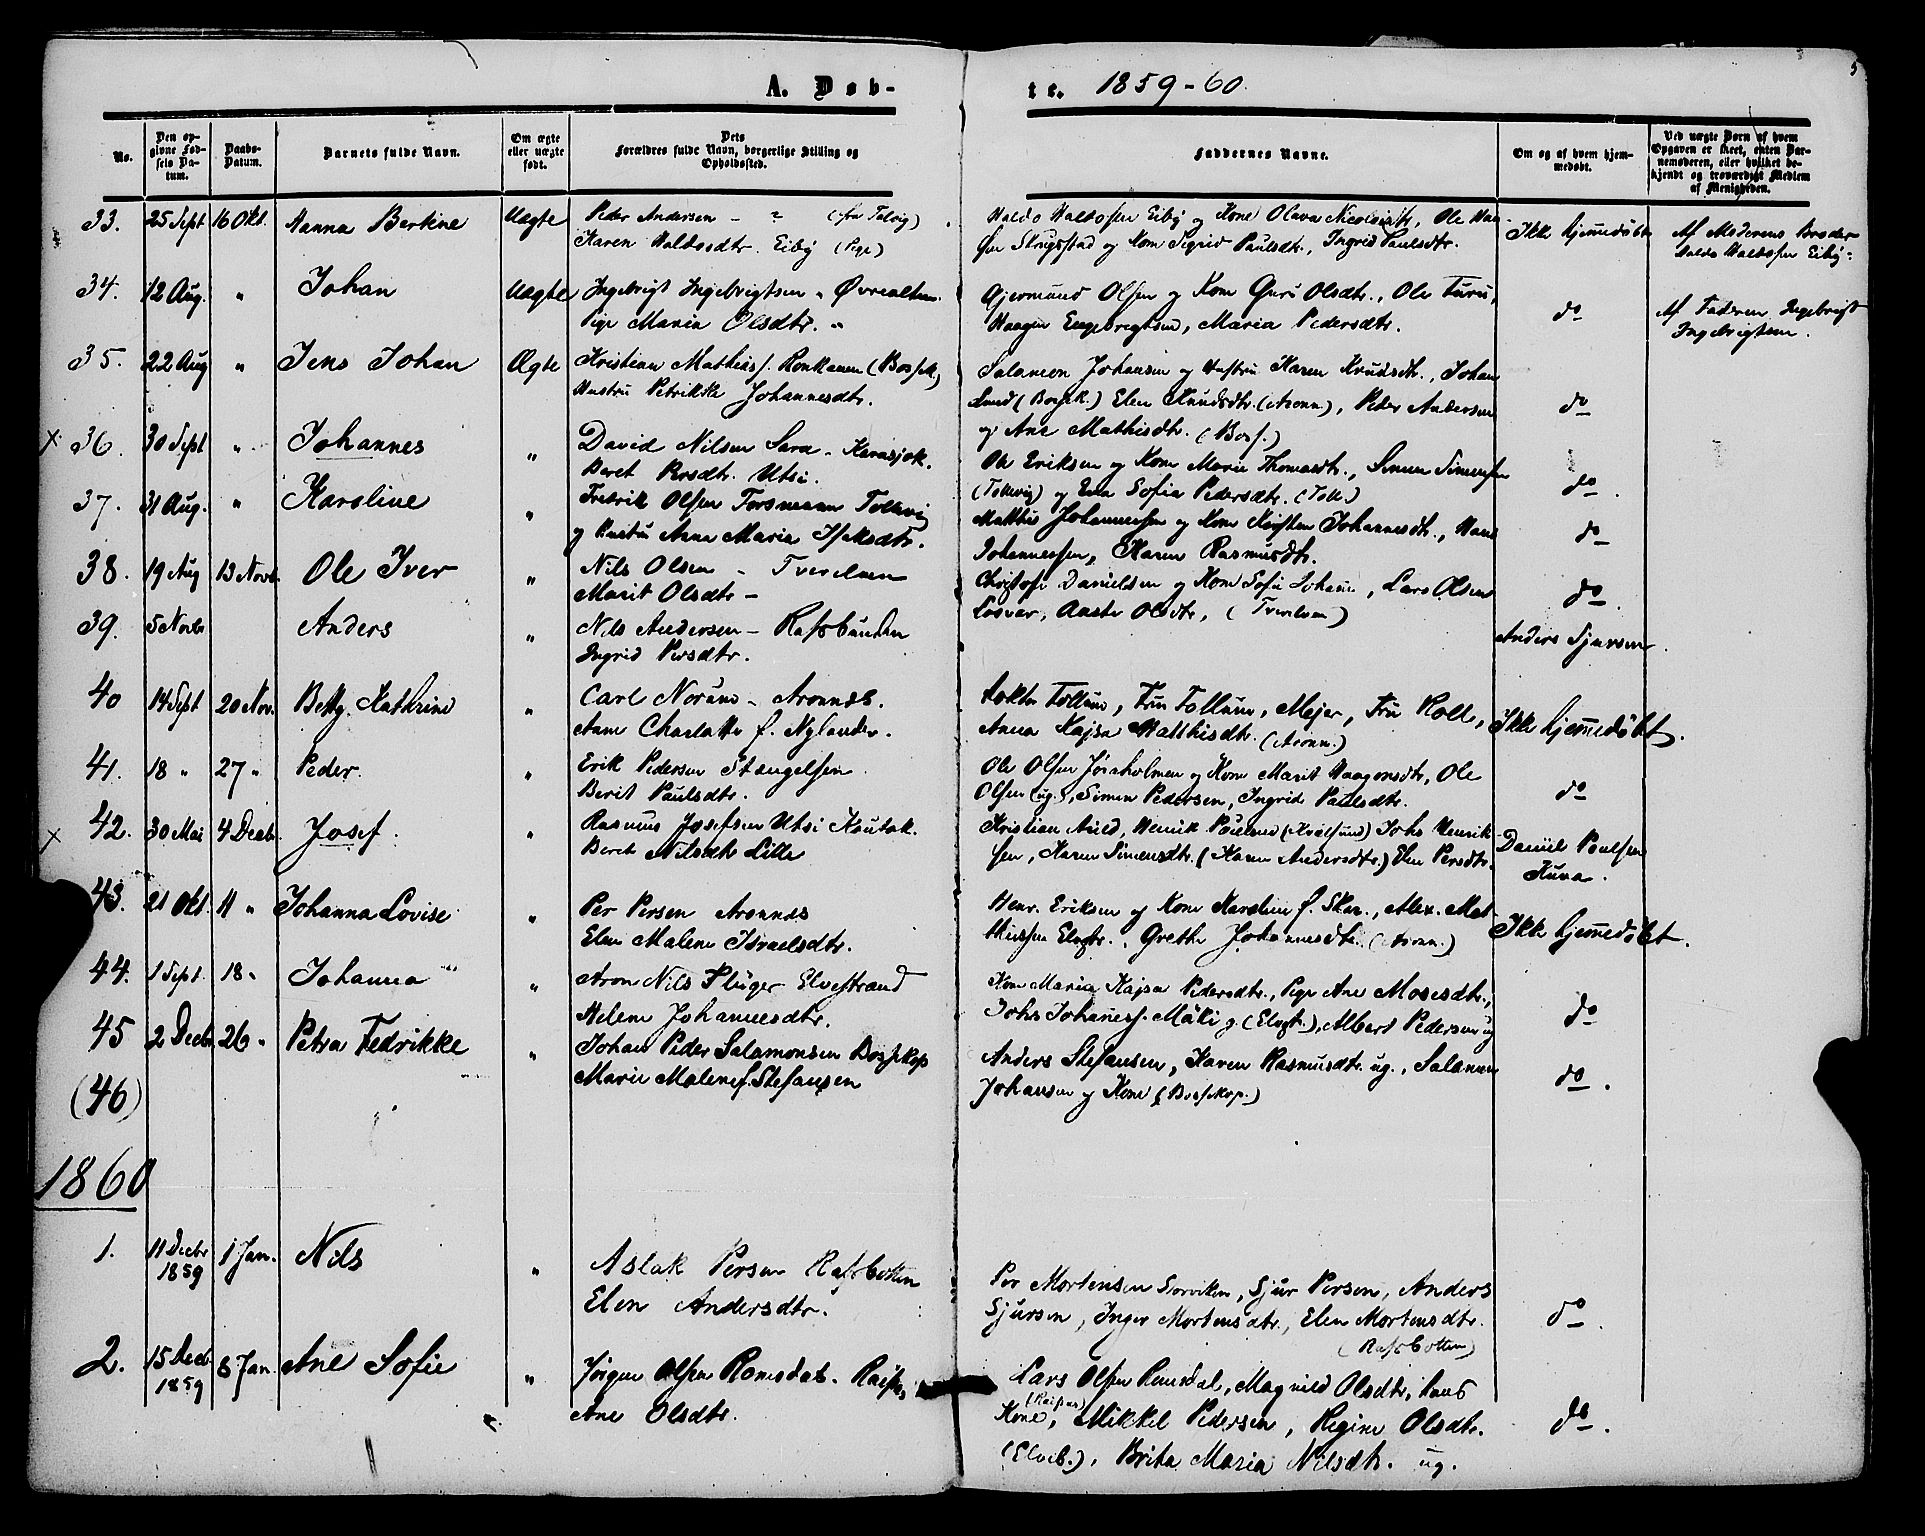 A. Døb-
te. 1859-60.
5
No.
Den opgivne Fødsels Datum.
Daabs-Datum.
Barnets fulde Navn.
Om ægte eller uægte født.
Dets Forældres fulde Navn, borgerlige Stilling og Opholdssted.
Faddernes Navne.
Om og af hvem hjemmedøbt.
Ved uægte Børn af hvem Opgaven er skeet, enten Barnemoderen, eller hvilket bekjendt og troværdigt Medlem af Menigheden.
33. 25 Sept 16 Okt. Hanna Berkine Uægte Peder Andersen - " (fra Talvig)
Karen Haldosdtr. Eiby (Pige)
Haldo Haldosen Eiby og Kone Olava Nicolaisdtr, Ole Haa-
sen og Kone Sigrid Paulsdtr., Ingrid Paulsdtr.
Ikke hjemmedøbt
Af Moderens Broder
Haldo Haldosen Eiby
34. 12 Aug. " Johan Uægte Ingebrigt Ingebrigtsen " Øvrealten.
Pige Maria Olsdtr. "
Gjermund Olsen og Kone Guru Olsdtr., Ole Furu,
Haagen Engebregtsen, Maria Pedersdtr.
do
Af Faderen Ingebrigt
Ingebrigtsen.
35. 22 Aug " Jens Johan Ægte Kristian Mathias. Ronkanen (Bossek.)
Hustru Petrikke Johannesdtr.
Salamon Johansen og Hustru Karen Knudsdtr., Johan
Lund (Bossek.) Elen Knudsdtr. (Aronn.), Peder Andersen
og Ane Mathisdtr. (Boss.)
do
x 36. 30 Sept " Johannes " David Nilsen Sara - Karasjok.
Beret Persdtr. Utsi.
Ole Eriksen og Kone Marie Thomasdtr., Simen Simensen
(Tollevig) og Eva Sofia Pedersdtr. (Tolle.)
do
37. 31 Aug. " Karoline " Fredrik Olsen Forsmann Tollevig
og Hustru Anna Maria Isaksdtr.
Matthis Johannessen og Kone Kirsten Johannesdtr., Hans
Johannessen, Karen Rasmusdtr.
do
38. 19 Aug 13 Novb. Ole Iver " Nils Olsen - Tverelven
Marit Olsdtr -
Christofe Danielsen og Kone Sofie Johanne, Lars Olsen
Losvar, Olsdtr, (Tverelven)
do
39. 5 Novbr Anders " Nils Andersen - Rafsbunden
Ingrid Persdtr.
Anders Sjursen
40 14 Sept 20 Nov. Betzy Kathrine " Carl Norum - Aronnes.
Ane Charlotte f. Nylander.
Doktor Follum, Fru Follum, Mejer, Fru Roll,
Anna Kajsa Matthisdtr. (Aronn.)
Ikke hjemmedøbt.
41. 18 " 27 " Peder. " Erik Pedersen Stengelsen
Berit Paulsdtr.
Ole Olsen Jøraholmen og Kone Marit Haagensdtr, Ole
Olsen (ug.), Simen Pedersen, Ingrid Paulsdtr.
do
x 42. 30 Mai 4 Decbr. Josef. " Rasmus Josefsen Utsi Koutok.
Beret Nilsdtr Lille
Kristian Auld, Henrik Poulsen (Kvilsund) Johs Henrik-
sen, Karen Simensdtr. (Karen Andersdtr.) Elen Persdtr.
Daniel Poulsen
Kuna.
43. 21 Okt. 11 " Johanna Lovise " Per Persen Aronnes
Elen Malene Israelsdtr.
Henr. Eriksen og Kone Karoline f. Skar., Alex. Mat-
thiessen Elvestr., Grethe Johannesdtr. (Aronn.)
Ikke hjemmedøbt.
44. 1 Sept. 18 " Johanna " Aron Nils Pluger Elvestrand
Helene Johannesdtr.
Kone Maria Kajsa Pedersdtr., Pige Ane Mosesdtr.,
Johs Johaness. Mäki og (Elvestr.), Albert Pedersen ug
do
45 2 Decbr 26 " Petra Fedrikke " Johan Peder Salamonsen Bossekop
Marie Malene f. Stefansen
Anders Stefansen, Karen Rasmusdtr. ug., Salamon
Johansen og Kone (Bossekop.)
do.
(46)
1860
1. 11 Decbr 1859 1 Jan. Nils " Aslak Persen Rafsbotten
Elen Andersdtr.
Per Mortensen Storviken, Sjur Persen, Anders
Sjursen, Inger Mortensdtr., Elen Mortensdtr.
(Rafsbotten)
do.
2. 15 Decbr 1859 8 Jan. Ane Sofie " Jørgen Olsen Romsdal. Raipas
Ane Olsdtr.
Lars Olsen Romsdal, Magnild Olsdtr, hans
Kone, (Raipas) Mikkel Pedersen, Regine Olsdtr.
(Elveb.), Brita Maria Nilsdtr. ug.
do.